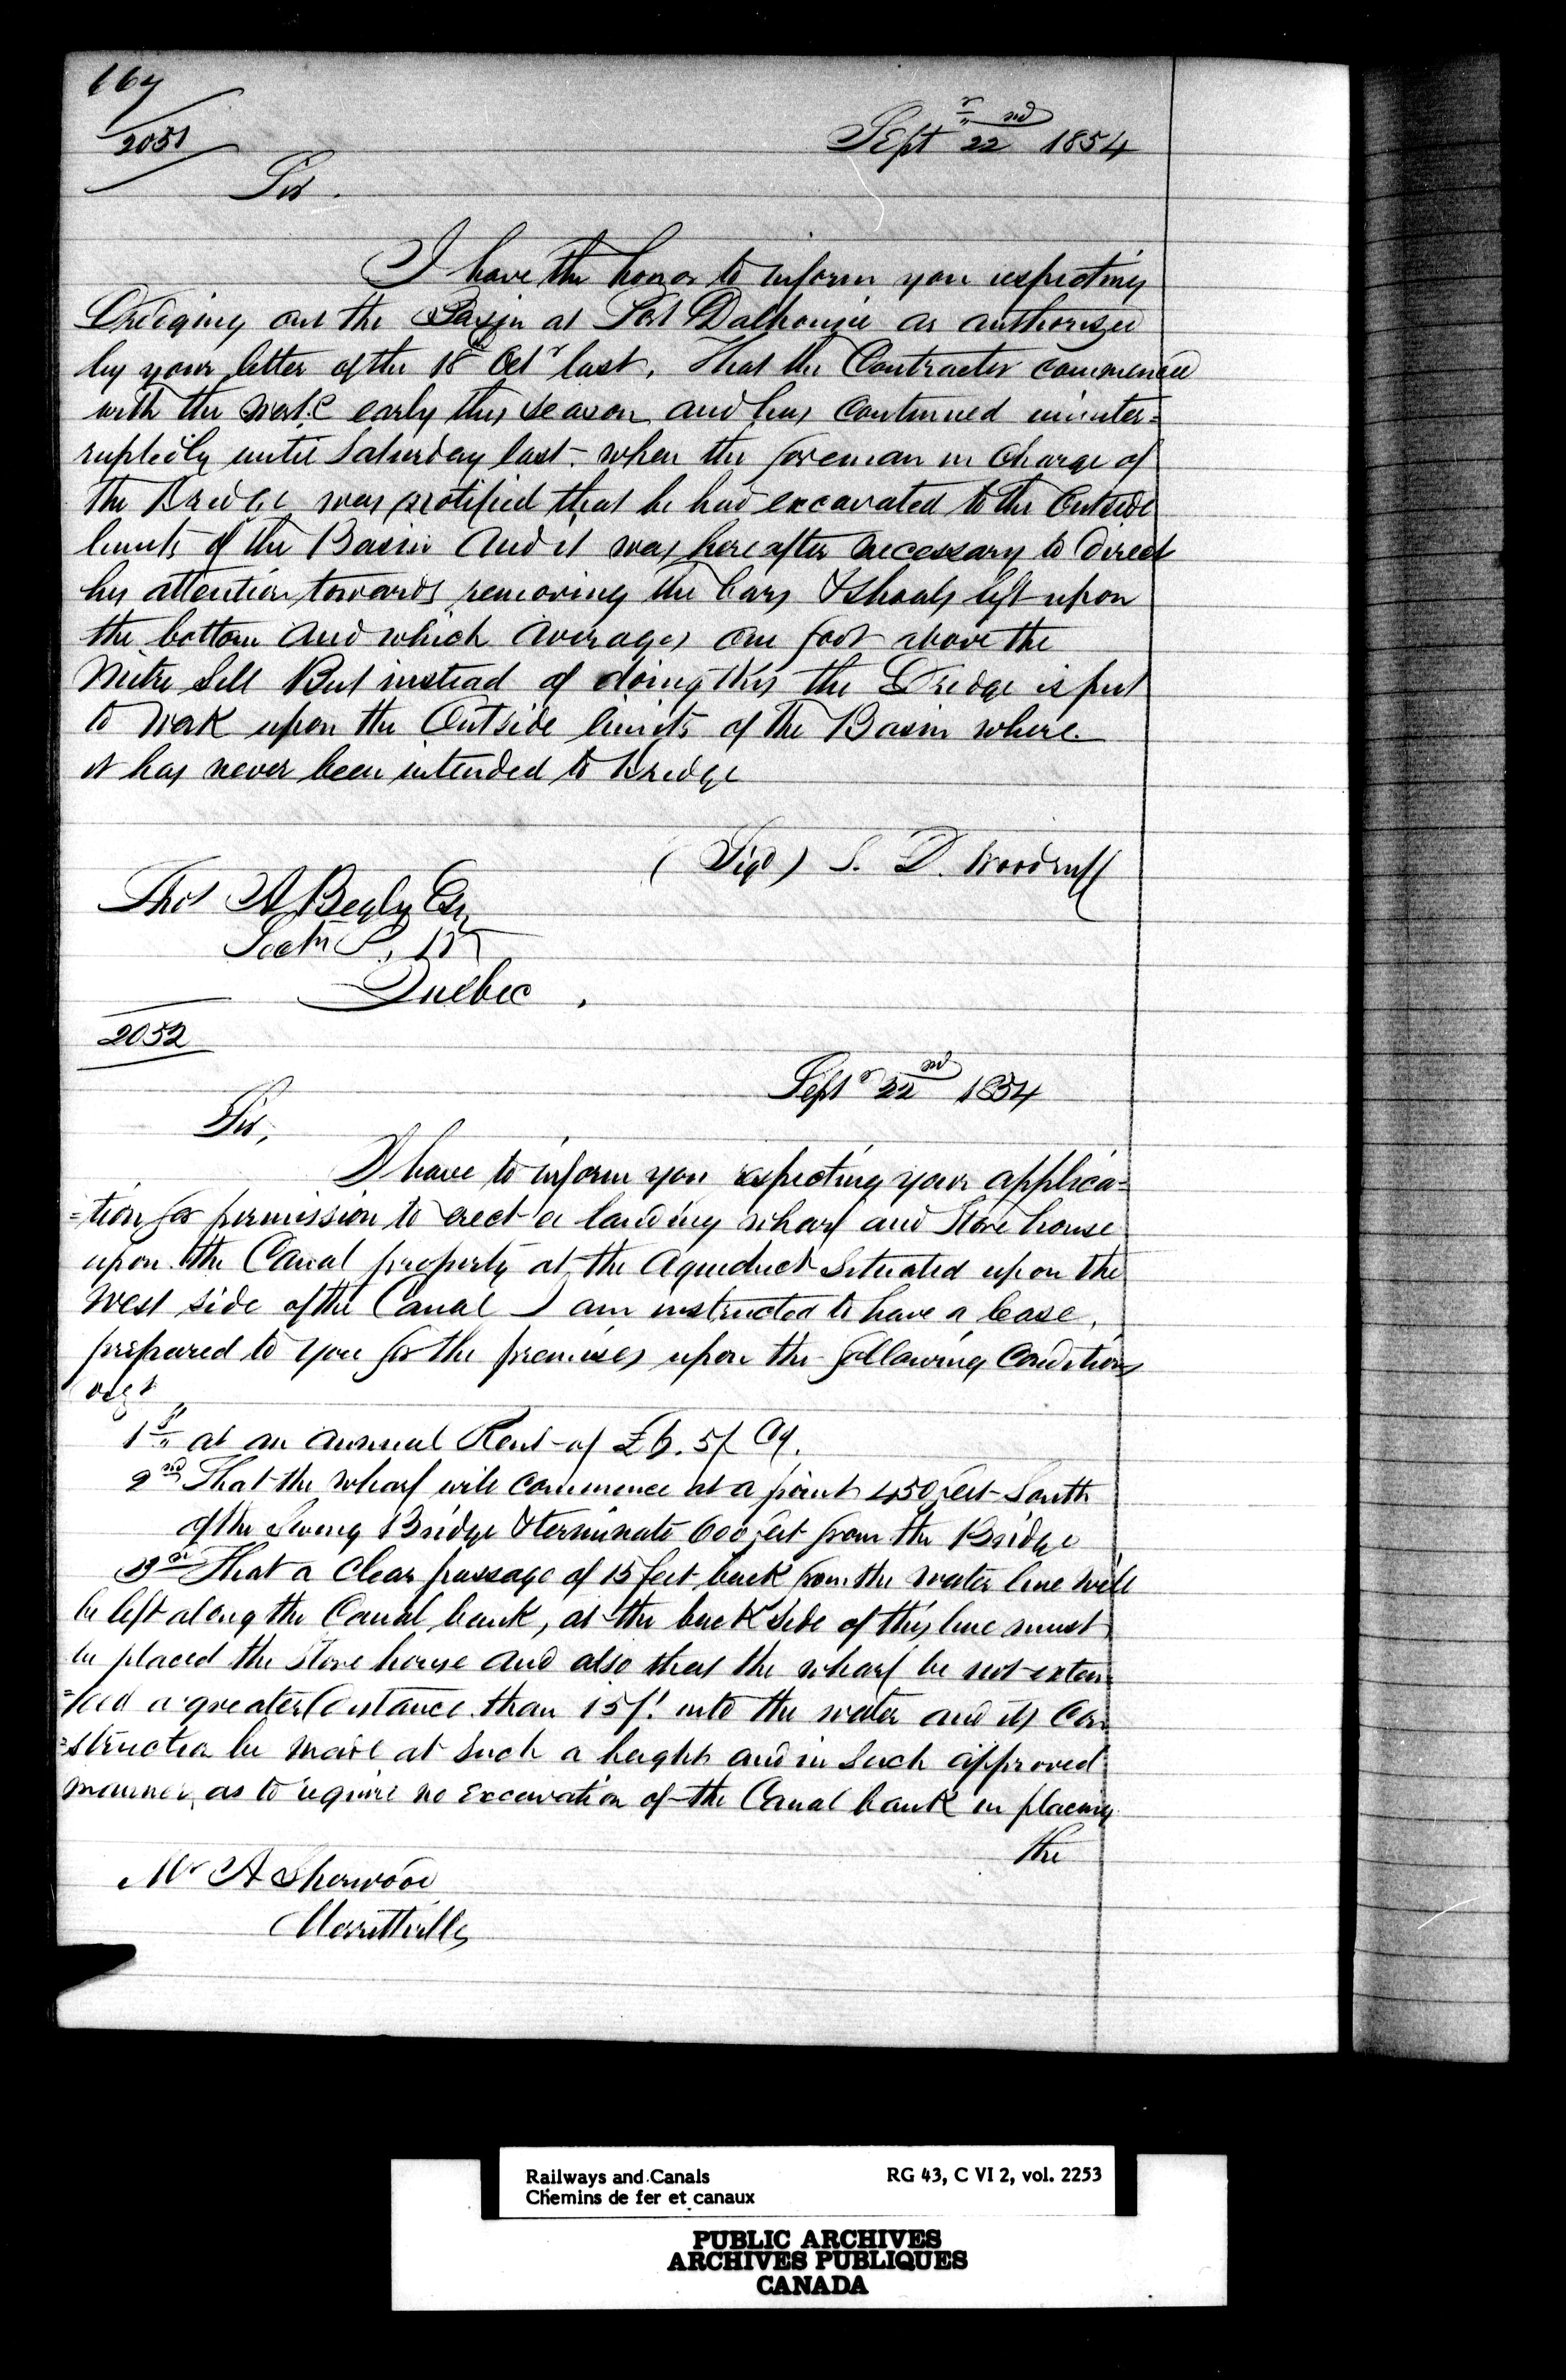 164
2051
Septr 22nd 1854
Sir.
I have the honor to inform you respecting
Dredging out the Basin at Port Dalhousie as authorized
by your letter of the 18th Octr last. That the Contractor commenced
with the work early this season and has continued uninter=
ruptedly until Saturday last. when the foreman in charge of
the Dredge was notified that he had excavated to the Outside
limits of the Basin and it was hereafter necessary to direct
his attention towards removing the bars & shoals left upon
the bottom and which averages one foot above the
Mitre Sill But instead of doing this the Dredge is put
to work upon the Outside limits of the Basin where
it has never been intended to Dredge
(Sigd) S. D. Woodruff
Thos A Begly Esq
Secty P. W
Quebec.
2052
Septr 22nd 1854
Sir,
I have to inform you respecting your applica=
=tion for permission to erect a landing wharf and Store house
upon the Canal property at the Aqueduct Situated upon the
West side of the Canal I am instructed to have a lease,
prepared to you for the premises upon the following Conditions
vizt
1st at an annual Rent of £6. 5/ Cy.
2nd That the wharf will commence at a point 450 feet South
of the Swing Bridge & terminate 600 feet from the Bridge
3rd That a clear passage of 15 feet back from the water line will
be left along the Canal bank, at the back side of this line must
be placed the Store house and also that the wharf be not exten
=ded a greater distance than 15 ft. into the water and its Con
=struction be made at such a height and in such approved
manner, as to require no excavation of the Canal bank in placing
the
Mr A Sherwood
Merrittville
Railways and Canals
Chemins de fer et canaux
RG 43, C VI 2, vol. 2253
PUBLIC ARCHIVES
ARCHIVES PUBLIQUES
CANADA